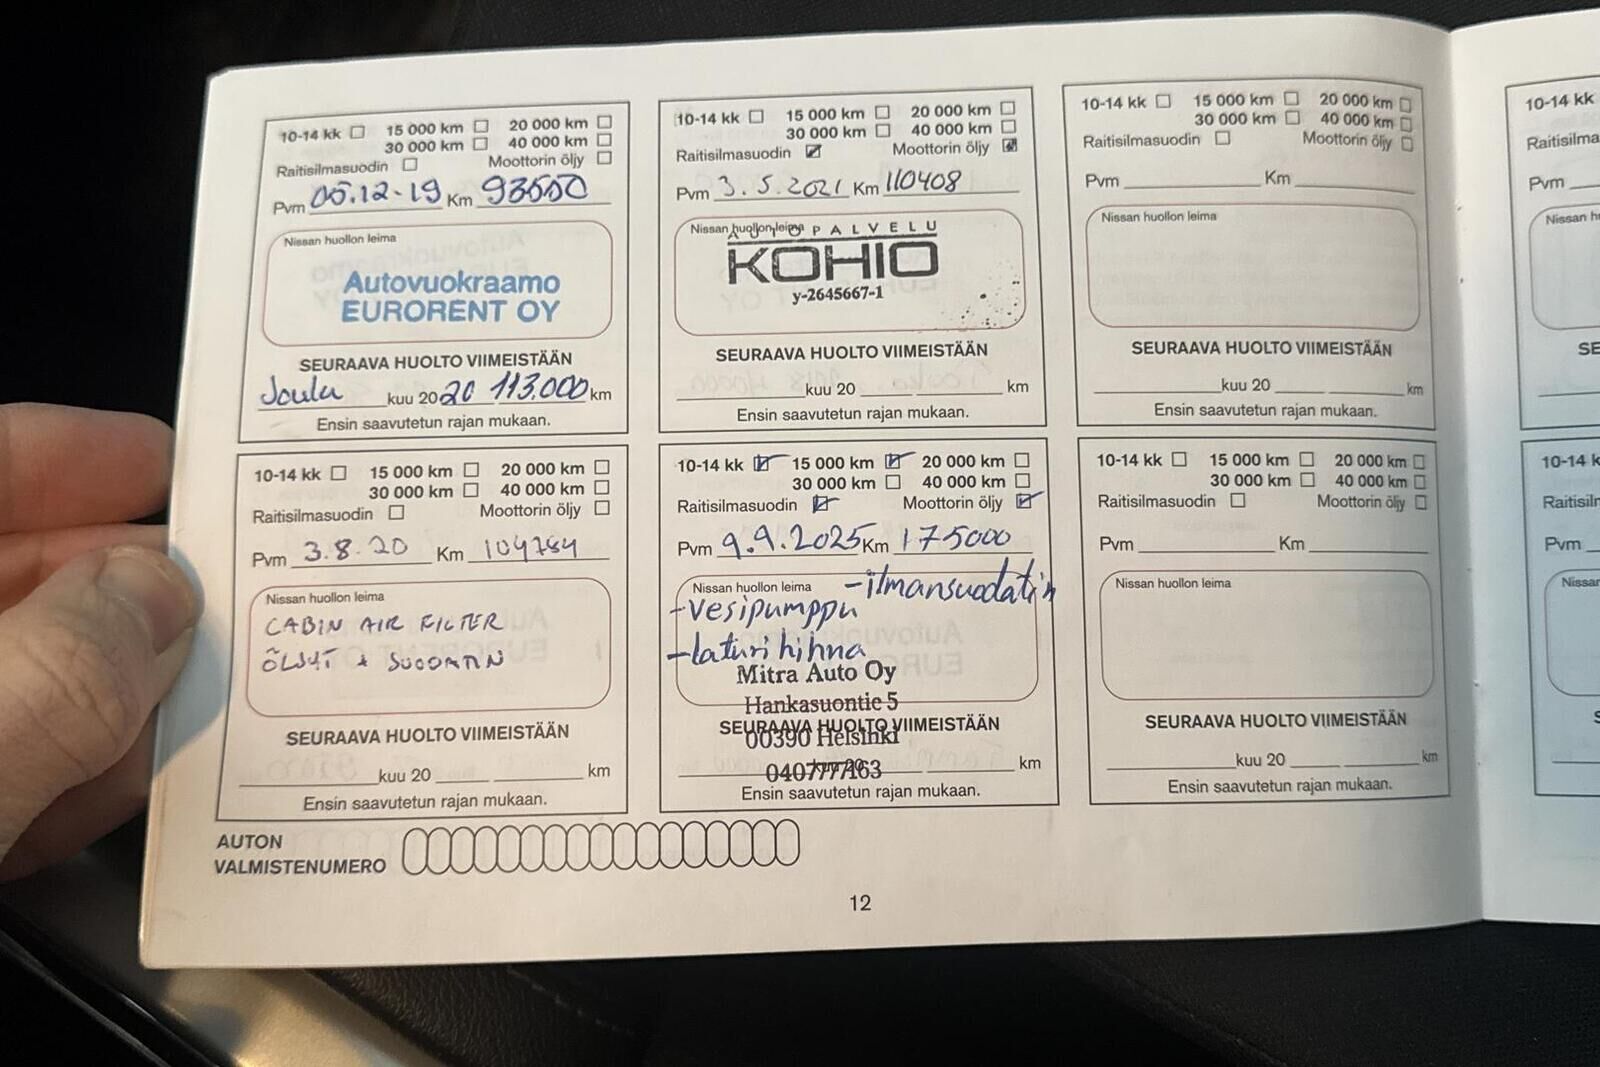 10-14 kk 15 000 km 20 000 km
30 000 km 40 000 km
Raitisilmasuodin Moottorin öljy
Pvm 05.12-19 Km 93500
Nissan huollon leima
Autovuokraamo
EURORENT OY
SEURAAVA HUOLTO VIIMEISTÄÄN
Joulu kuu 2020 113.000 km
Ensin saavutetun rajan mukaan.
10-14 kk 15 000 km 20 000 km
30 000 km 40 000 km
Raitisilmasuodin Moottorin öljy
Pvm 3.8.20 Km 104784
Nissan huollon leima
CABIN AIR FILTER
ÖLJYT + SUODATIN
SEURAAVA HUOLTO VIIMEISTÄÄN
kuu 20 km
Ensin saavutetun rajan mukaan.
10-14 kk 15 000 km 20 000 km
30 000 km 40 000 km
Raitisilmasuodin Moottorin öljy
Pvm 3.5.2021 Km 110408
Nissan huollon leima
AUTOPALVELU
KOHIO
y-2645667-1
SEURAAVA HUOLTO VIIMEISTÄÄN
kuu 20 km
Ensin saavutetun rajan mukaan.
10-14 kk 15 000 km 20 000 km
30 000 km 40 000 km
Raitisilmasuodin Moottorin öljy
Pvm 9.9.2025 Km 175000
Nissan huollon leima -ilmansuodatin
-vesipumppu
-laturi hihna
Mitra Auto Oy
Hankasuontie 5
SEURAAVA HUOLTO VIIMEISTÄÄN
00390 Helsinki
kuu 20 km
Ensin saavutetun rajan mukaan.
10-14 kk 15 000 km 20 000 km
30 000 km 40 000 km
Raitisilmasuodin Moottorin öljy
Pvm Km
Nissan huollon leima
SEURAAVA HUOLTO VIIMEISTÄÄN
kuu 20 km
Ensin saavutetun rajan mukaan.
10-14 kk 15 000 km 20 000 km
30 000 km 40 000 km
Raitisilmasuodin Moottorin öljy
Pvm Km
Nissan huollon leima
SEURAAVA HUOLTO VIIMEISTÄÄN
kuu 20 km
Ensin saavutetun rajan mukaan.
AUTON
VALMISTENUMERO
12
10-14 kk
Pvm
10-14
Pvm